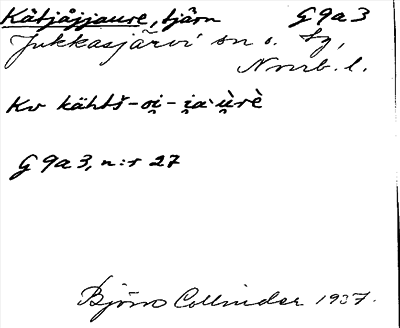 Kätjåjjaure, tjärn G 9a 3
Jukkasjärvi sn o. tg,
Norrb. l.
Kv kähtš-o̯i̯-i̯a·ùrè
G 9a 3, n:r 27
Björn Collinder 1937.